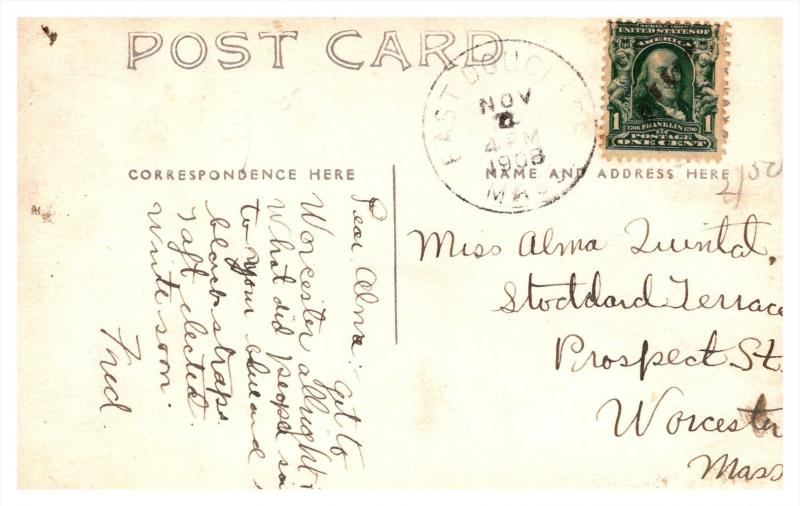 POST CARD
EAST DOUGLAS
NOV
4 PM
1908
MASS
UNITED STATES OF
AMERICA
1 1706 FRANKLIN 1790 1
POSTAGE
ONE CENT
CORRESPONDENCE HERE
NAME AND ADDRESS HERE
2/50
Dear Alma: Got to
Worcester allright
What did people sa
to your blue and
black straps
Taft elected.
Write soon.
Fred.
Miss Alma Quintal,
Stoddard Terrace
Prospect St.
Worcester
Mass